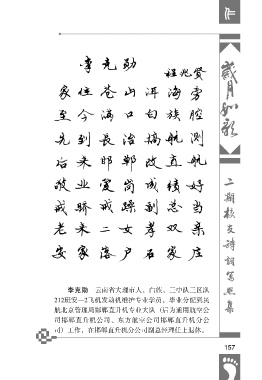 李克勋
程兆贤
家住苍山洱海旁
至今满口白族腔
先到长治搞航测
后来邯郸改直航
敬业爱岗成绩好
戒骄戒躁副总当
老来二女孝双亲
安家落户石家庄
李克勋 云南省大理市人，白族，三中队二区队
212班安—2飞机发动机维护专业学员。毕业分配到民
航北京管理局邯郸直升机专业大队（后为通用航空公
司邯郸直升机公司、东方航空公司邯郸直升机分公
司）工作，在邯郸直升机分公司副总经理任上退休。
岁月如歌
二期校友诗词写照集
157